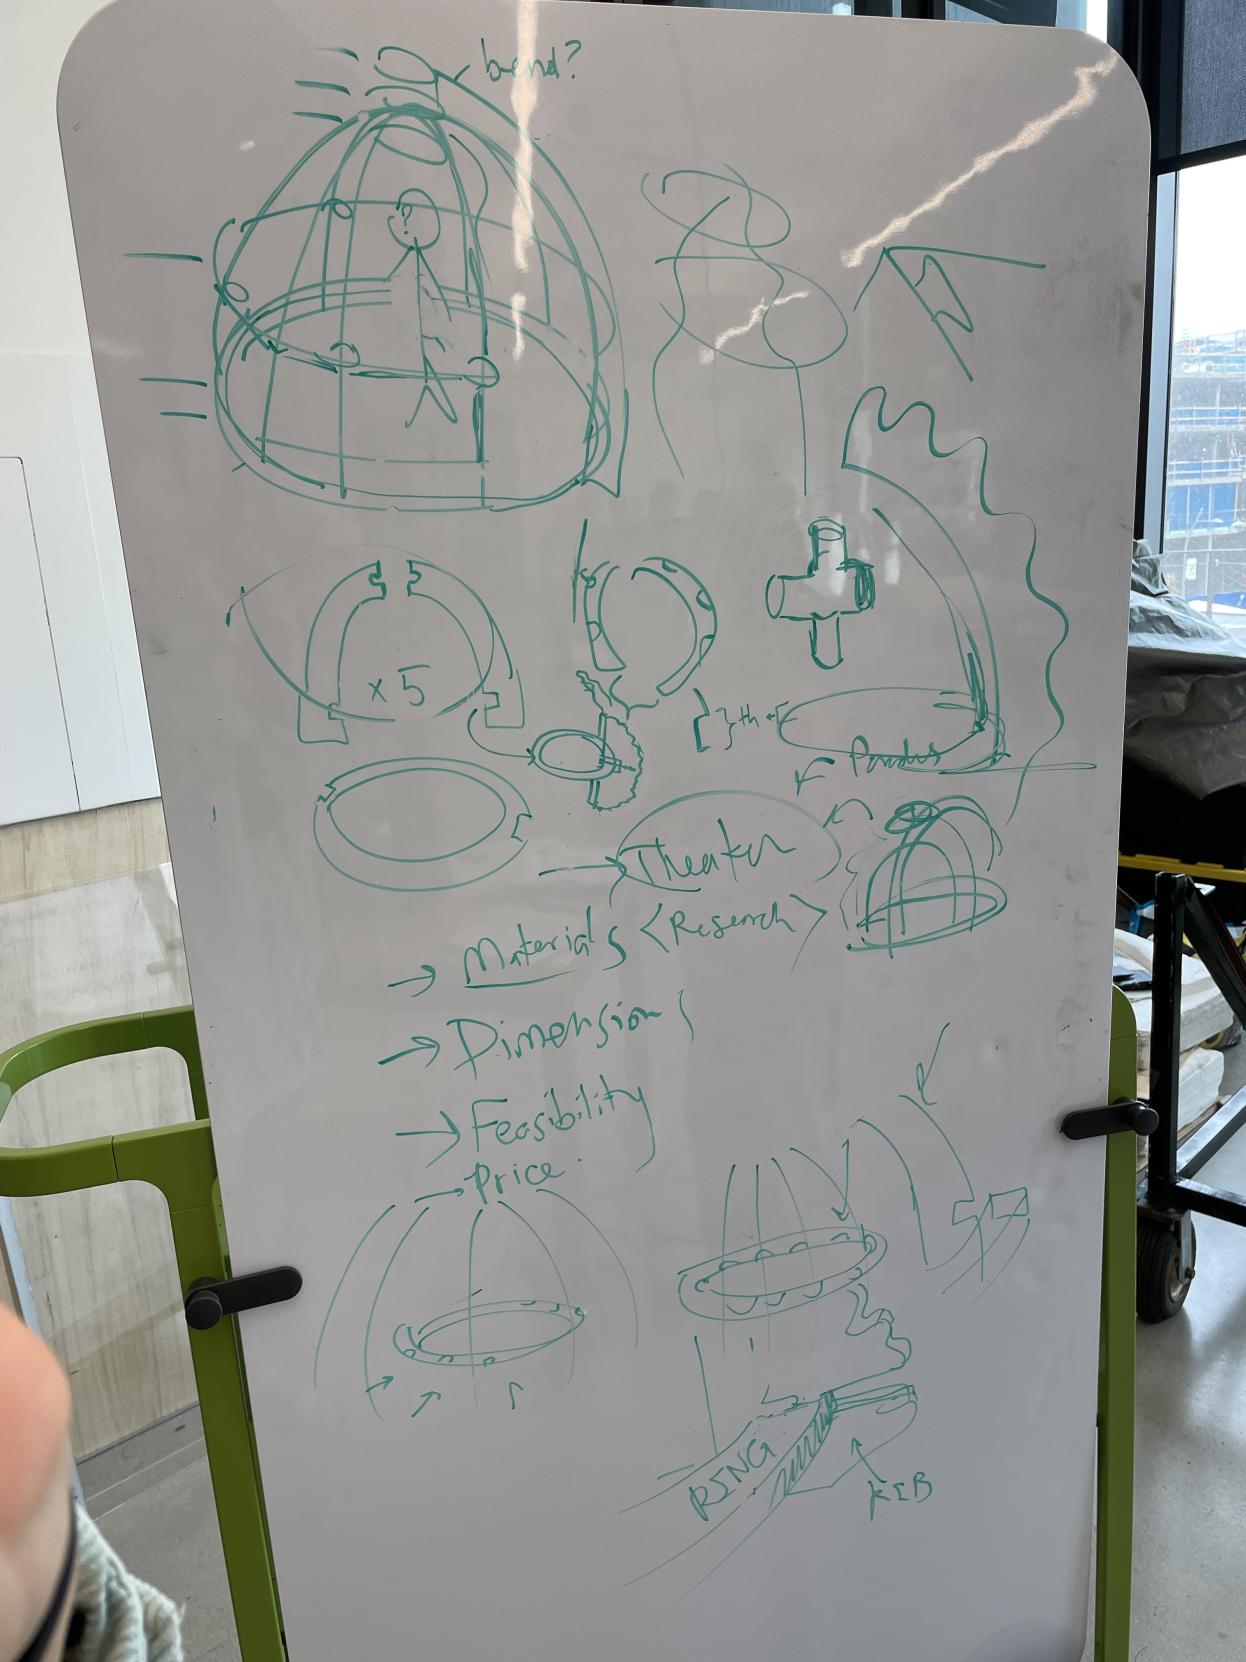 bend?
?
x 5
Theater
→ Materials <Research>
→ Dimensions
→ Feasibility
→ Price
RING
RIB